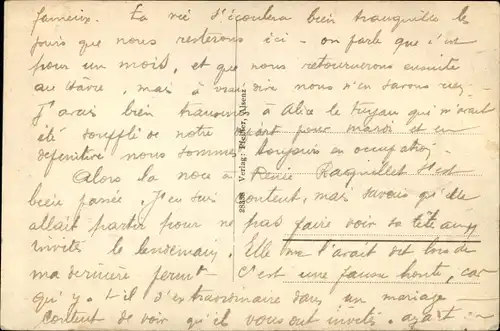 fameux. La vie s'écoulera bien tranquille les
jours que nous resterons ici - on parle que c'est
pour un mois, et que nous retournerons ensuite
au Hâvre, mais à vrai dire nous n'en savons rien
J'avais bien transmis à Alice le tuyau qui m'avait
été soufflé de notre départ pour mardi et en
définitive nous sommes toujours en occupation.
Alors la noce à Renée Racquillet s'est
bien passée. J'en suis content, mais savais qu'elle
allait partir pour ne pas faire voir sa tête aux
invités le lendemain. Elle me l'avait dit lors de
ma dernière perm. C'est une fausse honte, car
qu'y a-t-il d'extraordinaire dans un mariage
content de voir qu'il vous ont invités. ayant
Verlag: Pfeiffer, Alsenz